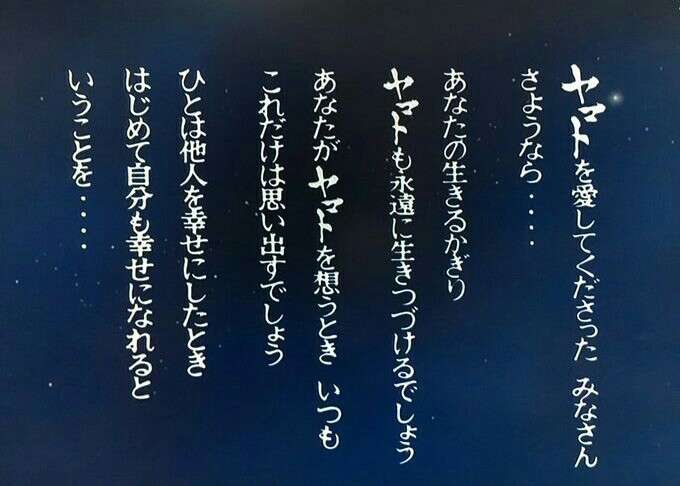 ヤマトを愛してくださった みなさん
さようなら・・・・
あなたの生きるかぎり
ヤマトも永遠に生きつづけるでしょう
あなたがヤマトを想うとき いつも
これだけは思い出すでしょう
ひとは他人を幸せにしたとき
はじめて自分も幸せになれると
いうことを・・・・